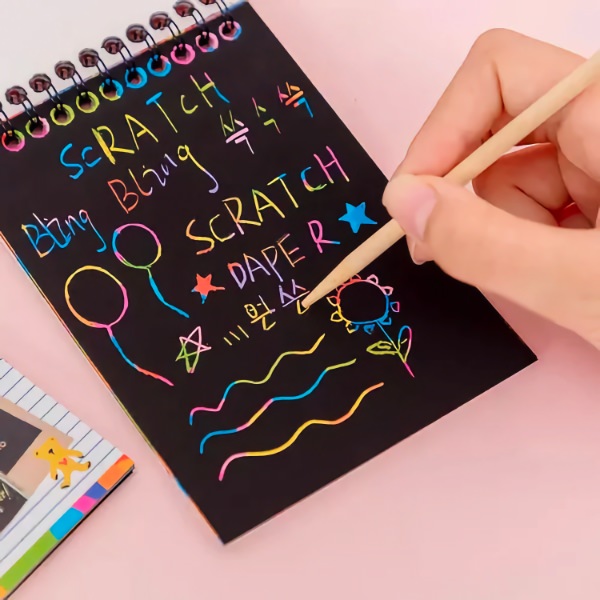 ScRATcH 쓱 슥 쓱
Bling Bling
SCRATCH
DAPE R